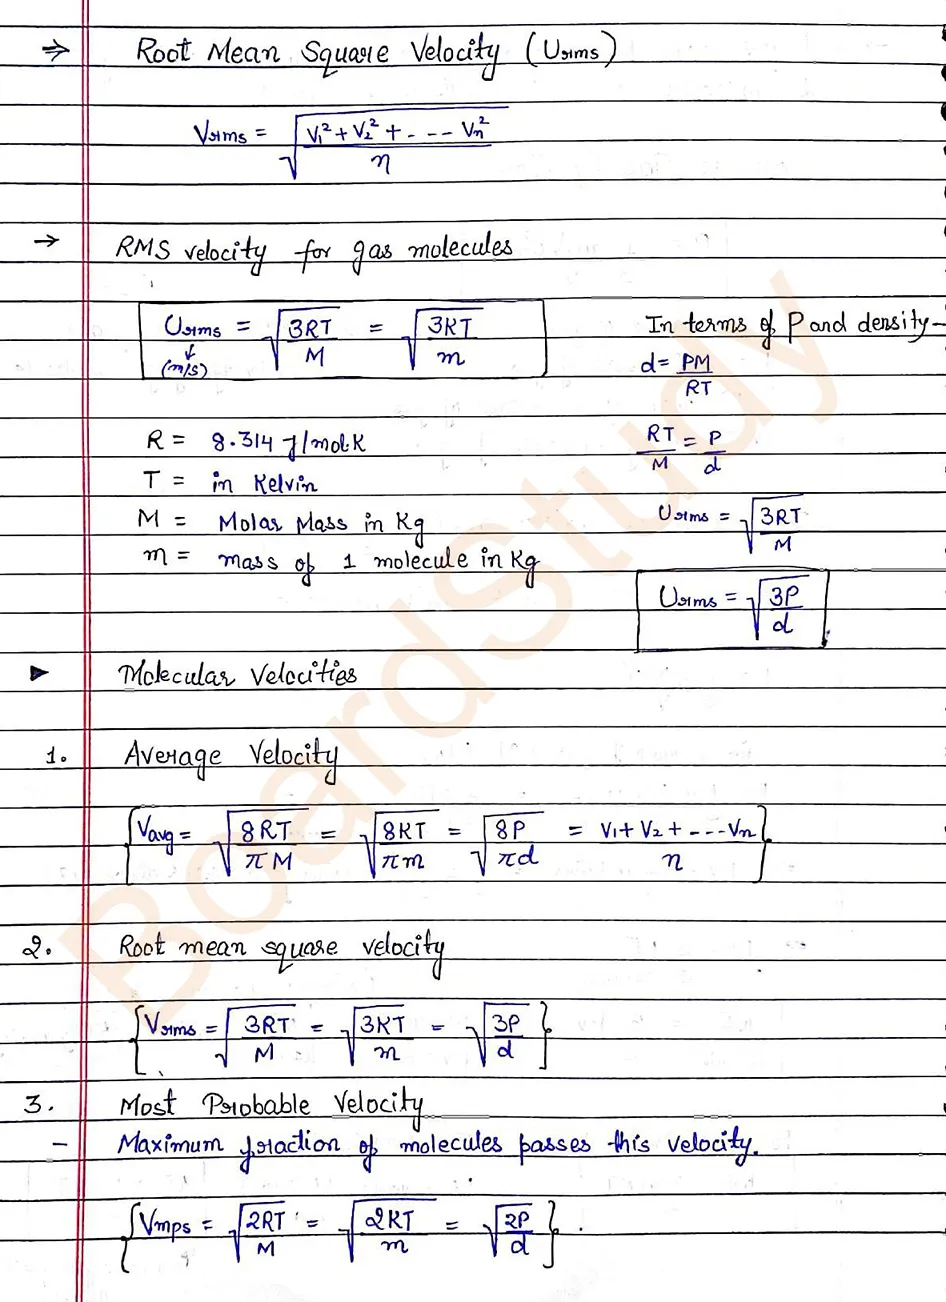 ⇒ Root Mean Square Velocity (Urms)
Vrms = √((V₁² + V₂² + - -- Vn²)/n)
→ RMS velocity for gas molecules
Urms = √(3RT/M) = √(3KT/m)
↓
(m/s)
In terms of P and density -
d = PM/RT
R = 8.314 J/mol·K
T = in Kelvin
M = Molar Mass in Kg
m = mass of 1 molecule in Kg
RT/M = P/d
Urms = √(3RT/M)
Urms = √(3P/d)
▶ Molecular Velocities
1. Average Velocity
{Vavg = √(8RT/πM) = √(8KT/πm) = √(8P/πd) = (V₁ + V₂ + - -- Vn)/n}
2. Root mean square velocity
[Vrms = √(3RT/M) = √(3KT/m) = √(3P/d)}
3. Most Probable Velocity
- Maximum fraction of molecules passes this velocity.
{Vmps = √(2RT/M) = √(2KT/m) = √(2P/d)}.
BoardStudy